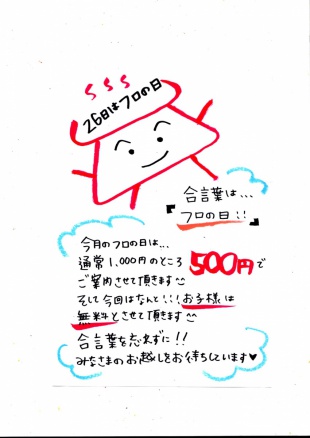 26日はフロの日
合言葉は...
『フロの日!!』
今月のフロの日は...
通常1,000円のところ500円で
ご案内させて頂きます
そして今回はなんと!!!お子様は
無料とさせて頂きます
合言葉を忘れずに!!
みなさまのお越しをお待ちしています♥